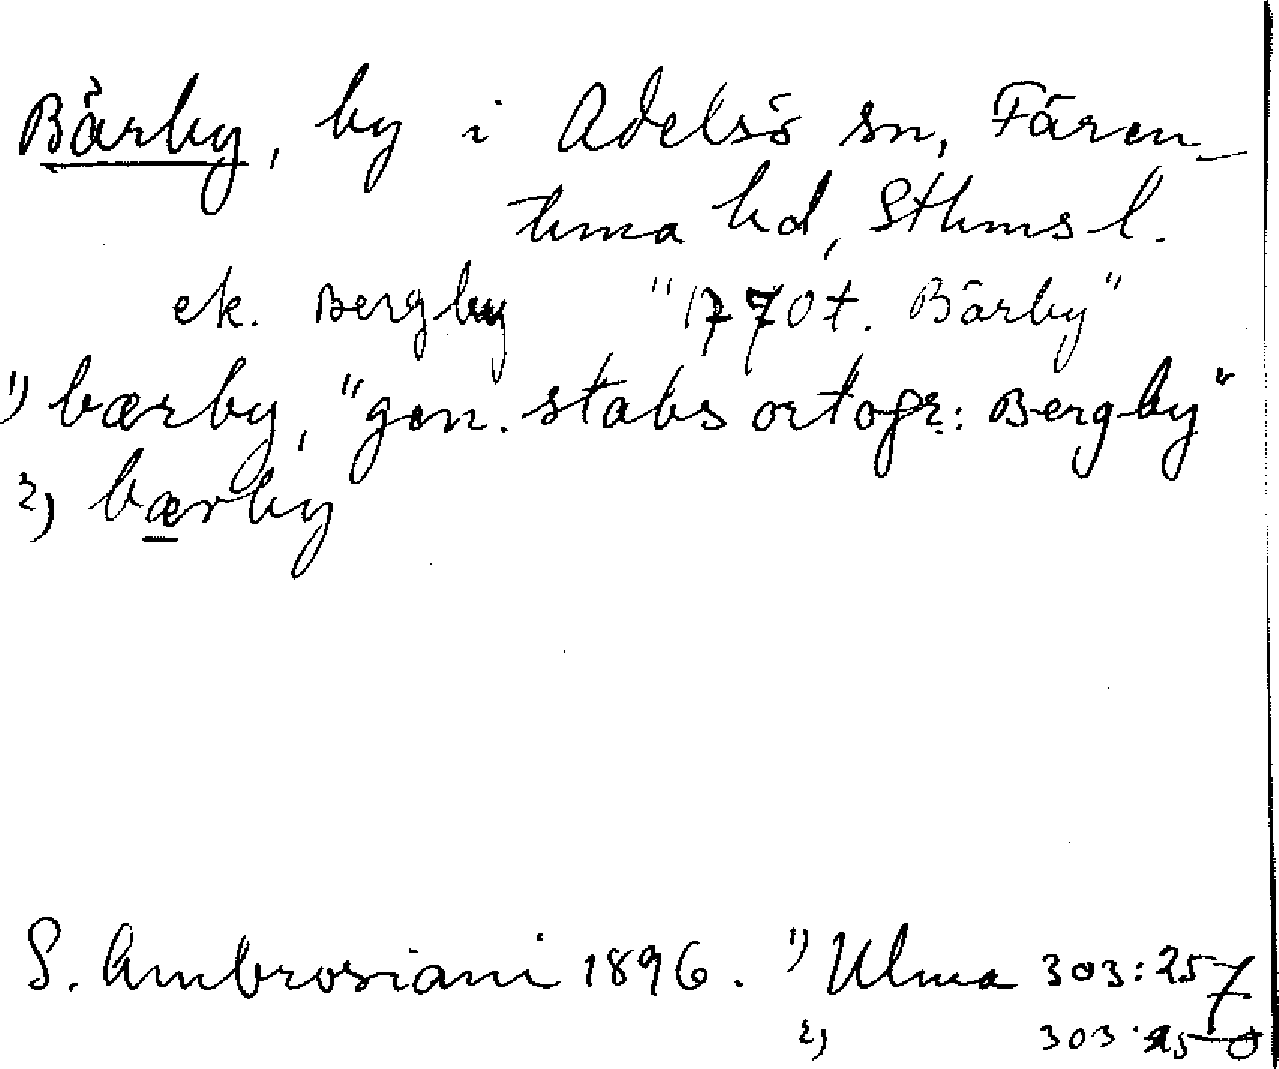 Bärby, by i Adelsö sn, Fären-
tuna hd, Sthms l.
ek. Bergby "1770 t. Bärby"
1) bærby, "gen. stabs ortogr.: Bergby"
2) bærby
S. Ambrosiani 1896. 1) Ulma 303:257
2) 303:250